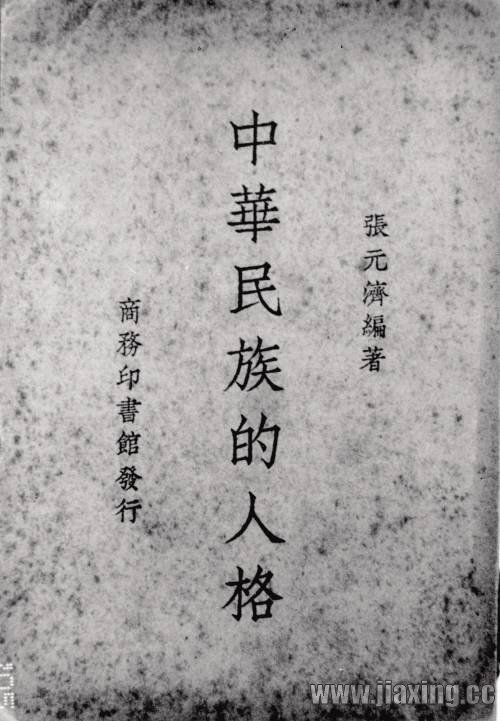 張元濟編著
中華民族的人格
商務印書館發行
www.jiaxing.cc